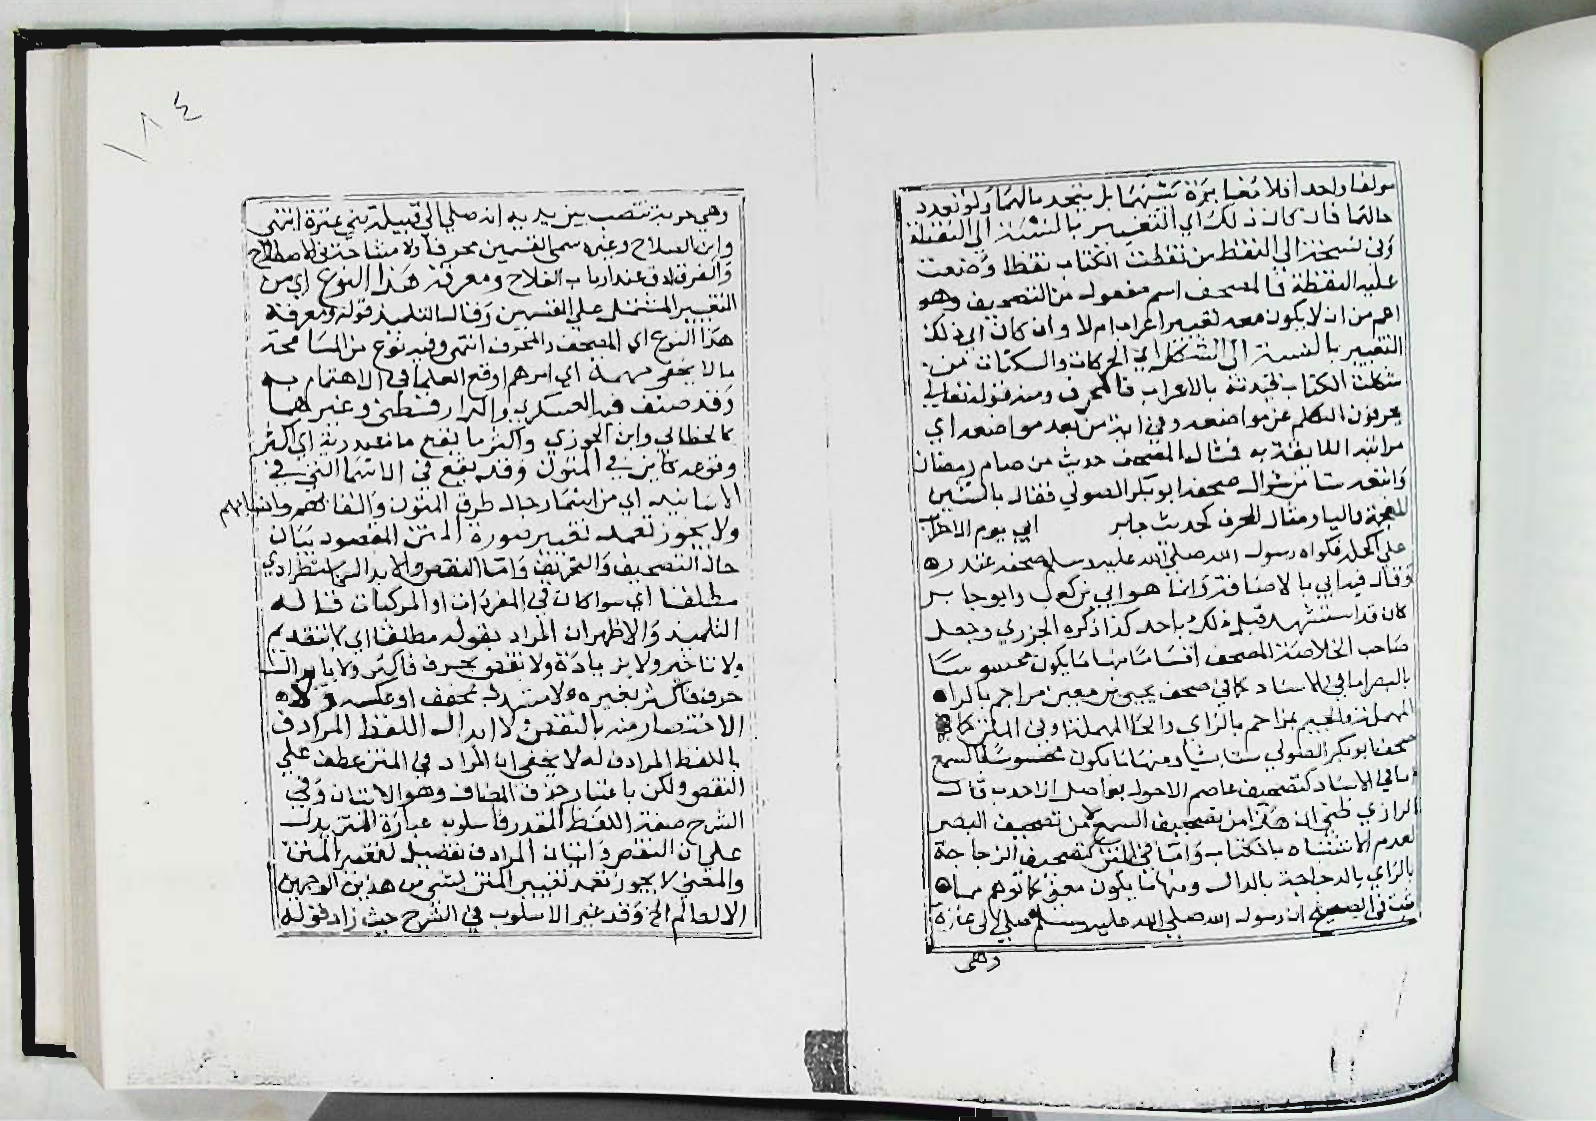 حالتها فان كان ذلك أي التغيير بالنسبة إلى النقطة
وفي نسخة الى النقط من نقطت الكتاب نقطا وضعت
عليه النقطة فالمصحف اسم مفعول من التصحيف وهو
اعم من ان لا يكون معه تغيير اعراب ام لا وان كان اي ذلك
التغيير بالنسبة الى الشكل اي الحركات والسكنات من
شكلت الكتاب قيدته بالاعراب فالمحرف ومنه قوله تعالى
يحرفون الكلم عن مواضعه وفي اية من بعد مواضعه اي
مراتبه اللايقة به فمثال المصحف حديث من صام رمضان
واتبعه ستا من شوال صحفه ابو بكر الصولي فقال بالشين
المعجمة والياء ومثال المحرف كحديث جابر ابي يوم الاحزاب
على اكحله فكواه رسول الله صلى الله عليه وسلم صحفه غندره
وقال فيه ابي بالاضافة وانما هو ابي بن كعب وابو جابر
كان قد استشهد قبل ذلك باحد كذا ذكره الجزري وجعل
صاحب الخلاصة المصحف اقساما منها ما يكون محسوسا
بالبصر اما في الاسناد كما في صحف يحيى بن معين مراجم بالراء
المهملة والجيم بمزاحم بالزاي والحا المهملة او في المتن كما
صحف ابو بكر الصولي ستا شيا ومنها ما يكون محسوسا بالسمع
اما في الاسناد كتصحيف عاصم الاحول بواصل الاحدب قال
الرازي ظني ان هذا من تصحيف السمع لا من تصحيف البصر
لعدم الاشتباه بالكتاب واما في المتن كتصحيف الزجاجة
بالزاي بالدجاجة بالدال ومنها ما يكون معنى كما توهم مما
ثبت في الصحيح ان رسول الله صلى الله عليه وسلم صلى الى عنزة
وهي
١٨٤
وهي حربة تنصب بين يديه انه صلى الى قبيلة بني عنزة انتهى
وابن الصلاح وغيره سمى القسمين محرفا ولا مشاحة في الاصطلاح
والفرق ادق عند ارباب الفلاح ومعرفة هذا النوع اي من
التغيير المشتمل على القسمين وقال التلميذ قوله ومعرفة
هذا النوع اي المصحف والمحرف انتهى وفيه نوع من المسامحة
ما لا يخفى مهمة اي امرهم اوقع العلما في الاهتمام به
وقد صنف فيه العسكري والدارقطني وغيرهما
كالخطابي وابن الجوزي واكثر ما يقع ما مصدرية اي اكثر
وقوعه كاين في المتون وقد يقع في الاسما التي في
الاسانيد اي من اسما رجال طرق المتون والقابهم وانسابهم
ولا يجوز تعمد تغيير صورة المتن المقصود بيان
حال التصحيف والتحريف واما النقص والابدال استطرادي
مطلقا اي سوا كان في المفردات او المركبات قاله
التلميذ والاظهر ان المراد بقوله مطلقا اي لا بتقديم
ولا تاخير ولا بزيادة ولا نقص بحرف فاكثر ولا بابدال
حرف فاكثر بغيره ولا مشدد بمخفف او عكسه ولا
الاختصار منه بالنقص ولا ابدال اللفظ المرادف
باللفظ المرادف له لا يخفى ان المراد في المتن عطف على
النقص ولكن باعتبار حذف المضاف وهو الاتيان وفي
الشرح صفة اللفظ المقدر فاسلوب عبارة المتن يدل
على ان النقص واتيان المرادف تفصيل لتغيير المتن
والمعنى لا يجوز تعمد تغيير المتن بشي من هذين الوجهين
الا لعالم الخ وقد غير الاسلوب في الشرح حيث زاد قوله